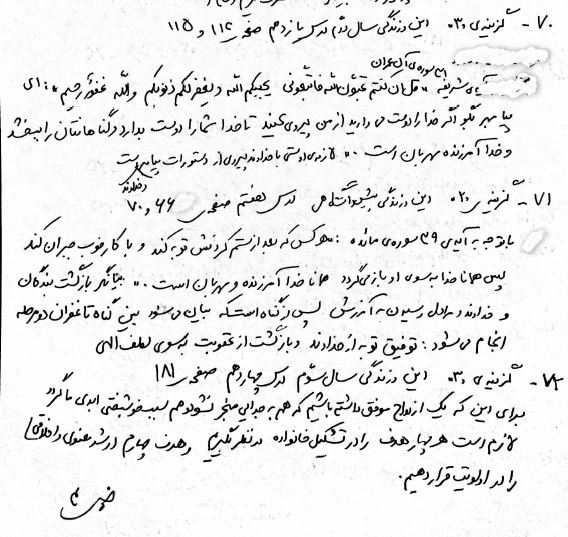 ۷۰- گزینه‌ی ۳۰ دین و زندگی سال دوم درس یازدهم صفحه ۱۱۲ و ۱۱۵
۳۱ سوره‌ی آل عمران
آیه‌ی شریفه «قل ان کنتم تحبون الله فاتبعونی یحببکم الله و یغفر لکم ذنوبکم والله غفور رحیم»: ای
پیامبر بگو اگر خدا را دوست می دارید از من پیروی کنید تا خدا شما را دوست بدارد و گناهانتان را ببخشد
و خدا آمرزنده مهربان است .» لازمه‌ی دوستی با خداوند پیروی از دستورات پیامبر است
۷۱- گزینه‌ی ۲۰ دین و زندگی پیش‌دانشگاهی درس هفتم صفحه ۶۶ و ۷۰
باتوجه به آیه‌ی ۳۹ سوره‌ی مائده : هرکس که بعد از ستم کردنش توبه کند و با کار خوب جبران کند
پس همانا خدا به سوی او بازمی‌گردد همانا خدا آمرزنده و مهربان است .» بیانگر بازگشت بندگان
و خداوند رسیدن به آمرزش پس از گناه است که بیان می‌شود بین گناه تا غفران دو مرحله
انجام می‌شود : توفیق توبه از خداوند و بازگشت از عقوبت به سوی لطف الهی
۷۲- گزینه‌ی ۳۰ دین و زندگی سال سوم درس چهاردهم صفحه ۱۸۱
برای این که یک ازدواج موفق داشته باشیم که هم به جدایی منجر نشود و هم سبب خوشبختی ابدی ما گردد
لازم است هر چهار هدف را در تشکیل خانواده در نظر بگیریم و هدف چهارم (رشد معنوی و اخلاقی)
را در اولویت قرار دهیم.